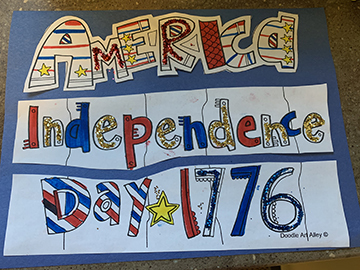 America
Independence
Day 1776
Doodle Art Alley ©